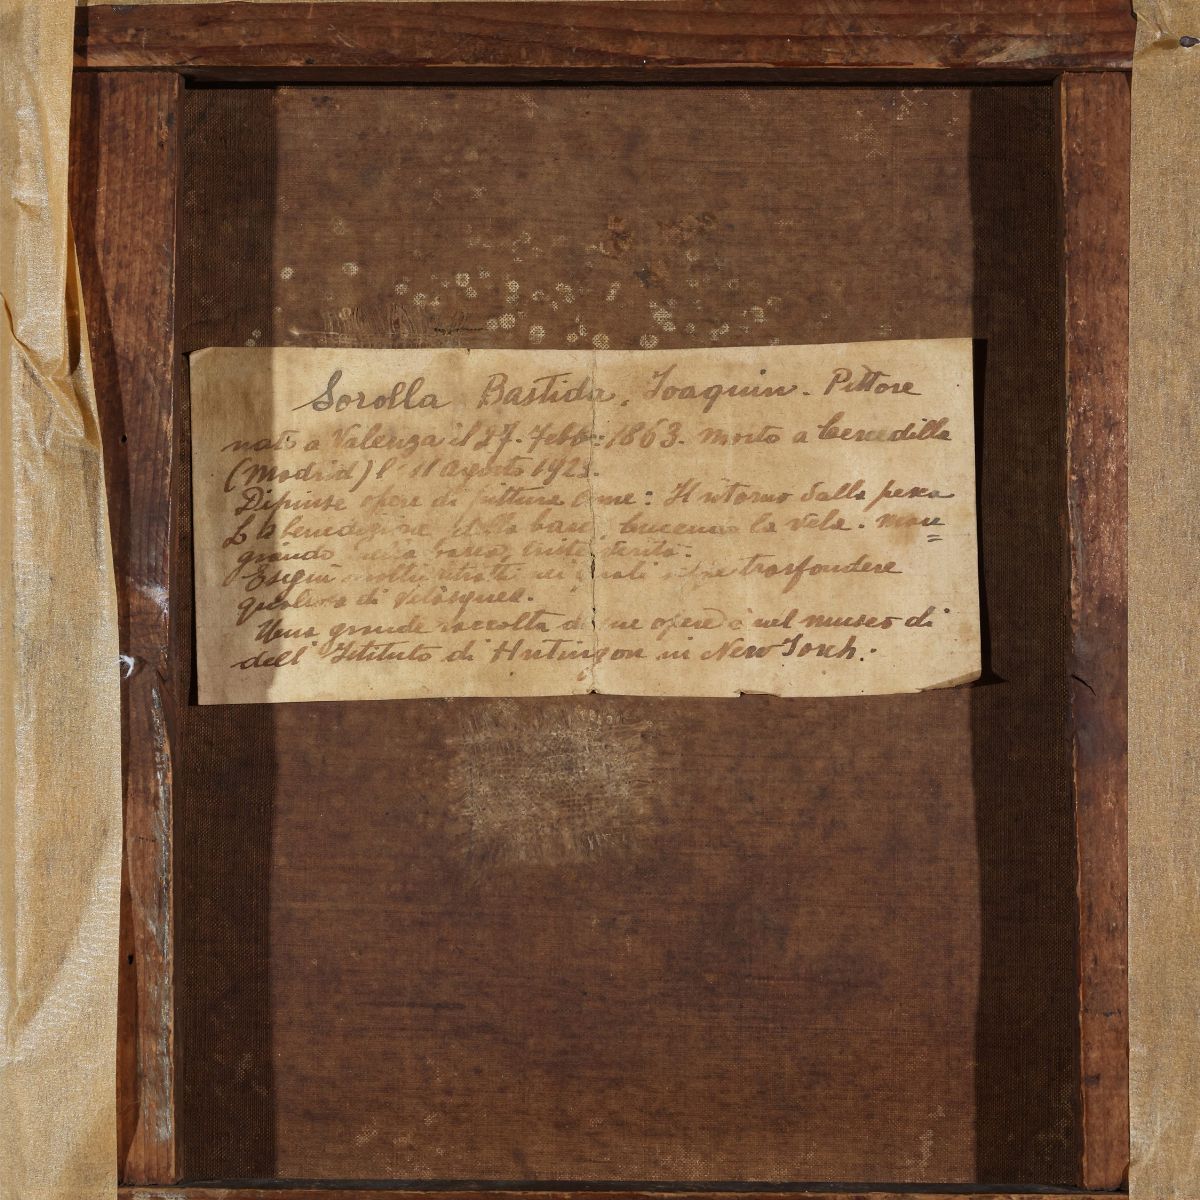 Sorolla Bastida, Joaquin. Pittore
nato a Valenza il 27. Febb: 1863. Morto a Cenedilla
(Madrid) l' 11 Agosto 1923.
Dipinse opere di pittura come: Il ritorno dalla pesca
La benedizione della barca, la vela. Man=
giando nella barca, triste
Eseguì molti ritratti nei quali trasfondere
qualcosa di Velasquez.
Una grande raccolta di sue opere è nel museo di
dell' Istituto di Hutingon in New Jorch.